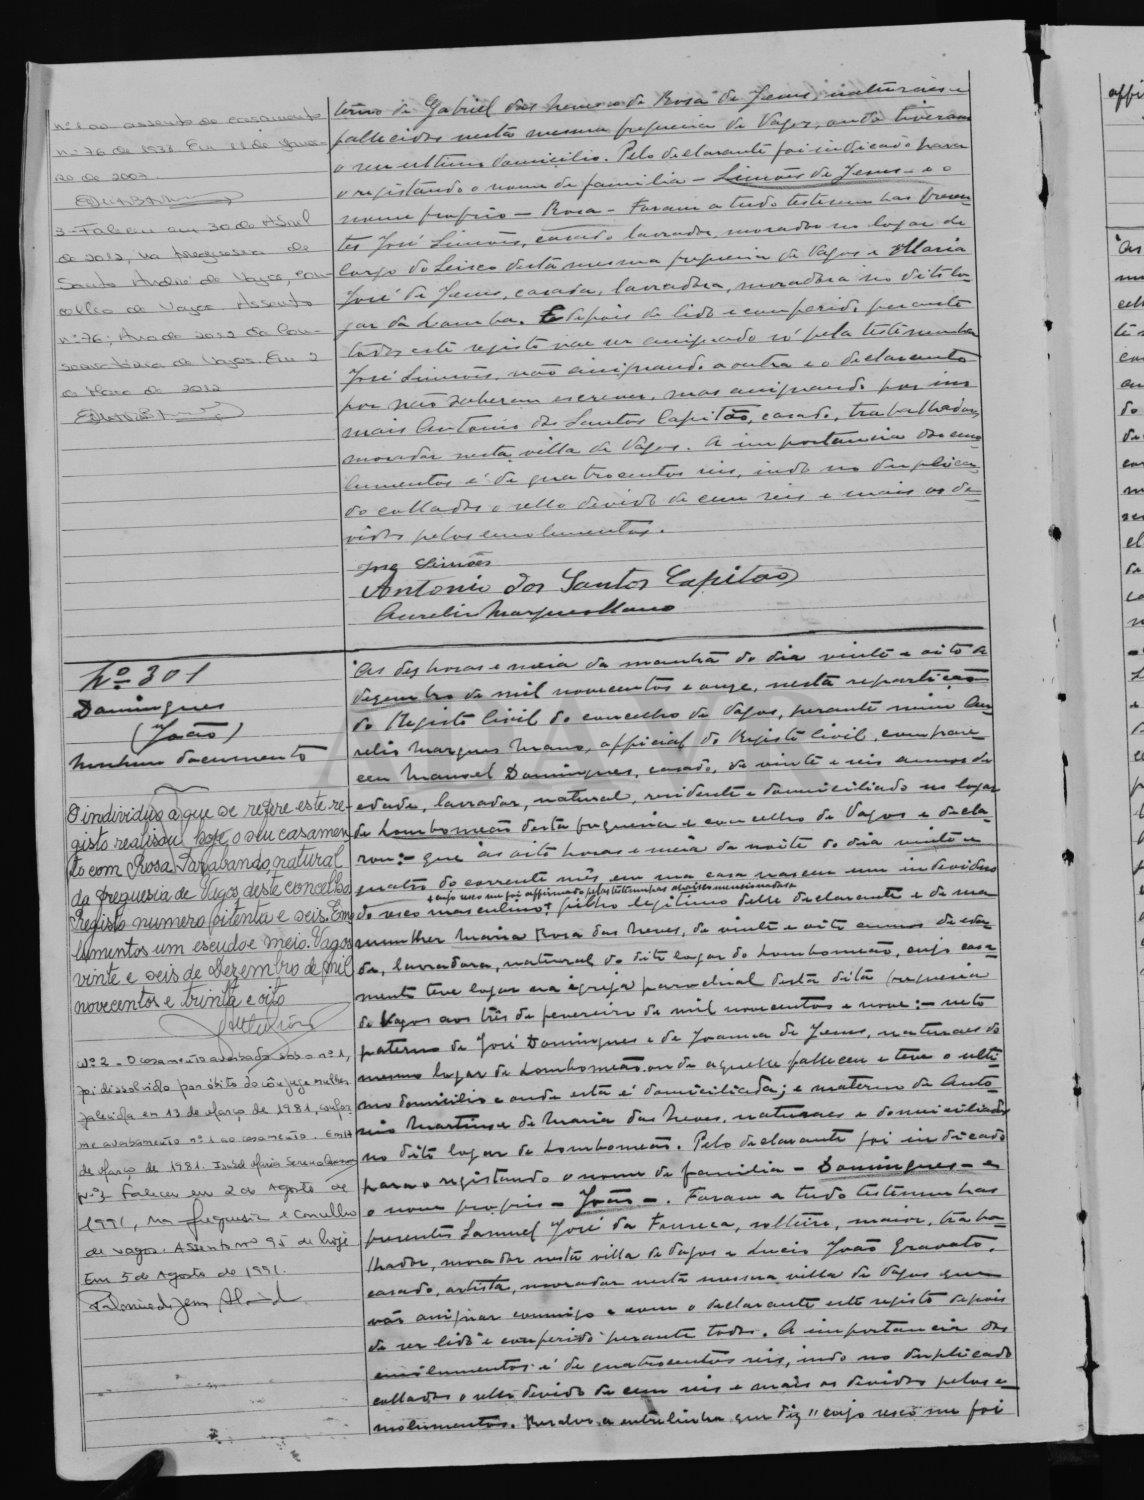 nº 1 ao assento de casamento
nº 76 de 1933. Em 11 de
ro de 2007.
3 - Faleceu em 30 de Abril
de 2012, na freguesia de
Santo André de Vagos, con-
celho de Vagos. Assento
nº 76, Ano de 2012 da Con-
servatória de Vagos. Em 2
de Maio de 2012
terno de Gabriel das Neves e de Rosa de Jesus, naturaes e
fallecidos nesta mesma freguesia de Vagos, onde tiveram
o seu ultimo domicilio. Pelo declarante foi indicado para
o registando o nome de familia - Simões de Jesus - e o
nome proprio - Rosa - Foram a tudo testemunhas presen-
tes José Simões, casado lavrador, morador no logar de
de Seixo desta mesma freguesia de Vagos e Maria
José de Jesus, casada, lavradora, moradora no dito lo-
gar da Lomba. E depois de lido e conferido perante
todos este registo vae ser assignado só pela testemunha
José Simões, não assignando a outra e o declarante
por não saberem escrever, mas assignando por
mais Antonio dos Santos Capitão, casado, trabalhador,
morador nesta villa de Vagos. A importancia dos emo-
lumentos é de quatrocentos reis, indo no duplica-
do collados o sello devido de cem reis e mais os de-
vidos pelos emolumentos.
José Simões
Antonio dos Santos Capitão
Aurelio Marques Mano
Nº 301
Domingues
(João)
Nenhum documento
O individuo a que se refere este re-
gisto realisou hoje o seu casamen-
to com Rosa Sarabando, natural
da freguesia de Vagos deste concelho
Registo numero oitenta e seis. Emo-
lumentos um escudo e meio. Vagos
vinte e seis de Dezembro de mil
novecentos e trinta e oito
Nº 2 - O casamento averbado sob o nº 1,
foi dissolvido por óbito do cônjuge mulher
falecida em 13 de Março de 1981, confor-
me averbamento nº 1 ao casamento. Em
de Março de 1981.
Nº 3 Faleceu em 2 de Agosto de
1991, na freguesia e Concelho
de Vagos. Assento nº 95 de hoje
Em 5 de Agosto de 1991.
Ás dez horas e meia da manhã do dia vinte e oito de
dezembro de mil novecentos e onze, nesta repartição
do Registo Civil do concelho de Vagos, perante mim Au-
relio Marques Mano, official do Registo Civil, compare-
ceu Manoel Domingues, casado, de vinte e seis annos de
edade, lavrador, natural, residente e domiciliado no logar
de Lombomeão desta freguesia e concelho de Vagos e decla-
rou: - que ás oito horas e meia da noite do dia vinte e
quatro do corrente mês, em sua casa nasceu um individuo
+ cujo sexo me foi affirmado pelas testemunhas abaixo mencionadas
do sexo masculino + filho legitimo delle declarante e de sua
mulher Maria Rosa das Neves, de vinte e oito annos de eda-
de, lavradora, natural do dito logar do Lombomeão, cujo casa-
mento teve logar na igreja parochial desta dita freguesia
de Vagos aos três de fevereiro de mil novecentos e nove: - neto
paterno de José Domingues e de Joanna de Jesus, naturaes do
mesmo logar de Lombomeão, onde aquelle falleceu e teve o ulti-
mo domicilio e onde esta é domiciliada; e materno de Antó-
nio Martins e de Maria das Neves, naturaes e domiciliados
no dito logar de Lombomeão. Pelo declarante foi indicado
para o registando o nome de familia - Domingues - e
o nome proprio - João -. Foram a tudo testemunhas
presentes Samuel José da Fonseca, solteiro, maior, traba-
lhador, morador nesta villa de Vagos e Lucio João Gravato,
casado, artista, morador nesta mesma villa de Vagos que
vão assignar commigo e com o declarante este registo depois
de ser lido e conferido perante todos. A importancia dos
emolumentos é de quatrocentos reis, indo no duplicado
collados o sello devido de cem reis e mais os devidos pelos e-
molumentos. Resalvo a entrelinha que diz "cujo sexo me foi